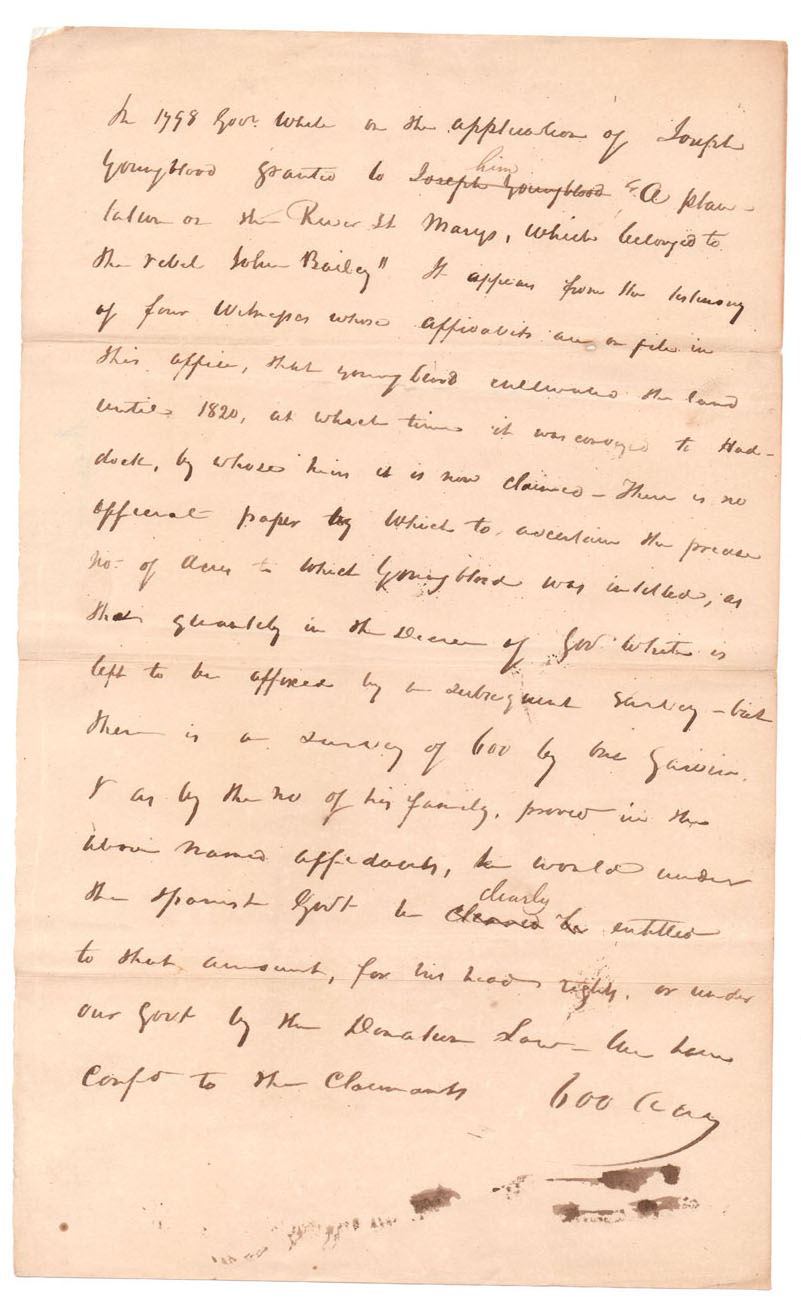 In 1798 Govr. White on the application of Joseph
Youngblood granted to Joseph Youngblood him "A plan-
tation on the River St Marys, which belonged to
the rebel John Bailey" It appears from the testimony
of four Witnesses whose affidavits are on file in
this office, that Youngblood cultivated the land
until 1820, at which time it was conveyed to Had-
dock, by whose heirs it is now claimed - There is no
official paper by which to ascertain the precise
no. of Acres to which Youngblood was intitled, as
the quantity in the Decree of Gov White is
left to be affixed by a subsequent survey - but
there is a survey of 600 by
& as by the no of his family, proved in the
above named affidavits, he would under
the Spanish Govt be clearly entitled
to that amount, for his head rights, or under
our Govt by the Donation Law - We have
Confd to the Claimants 600 Acres